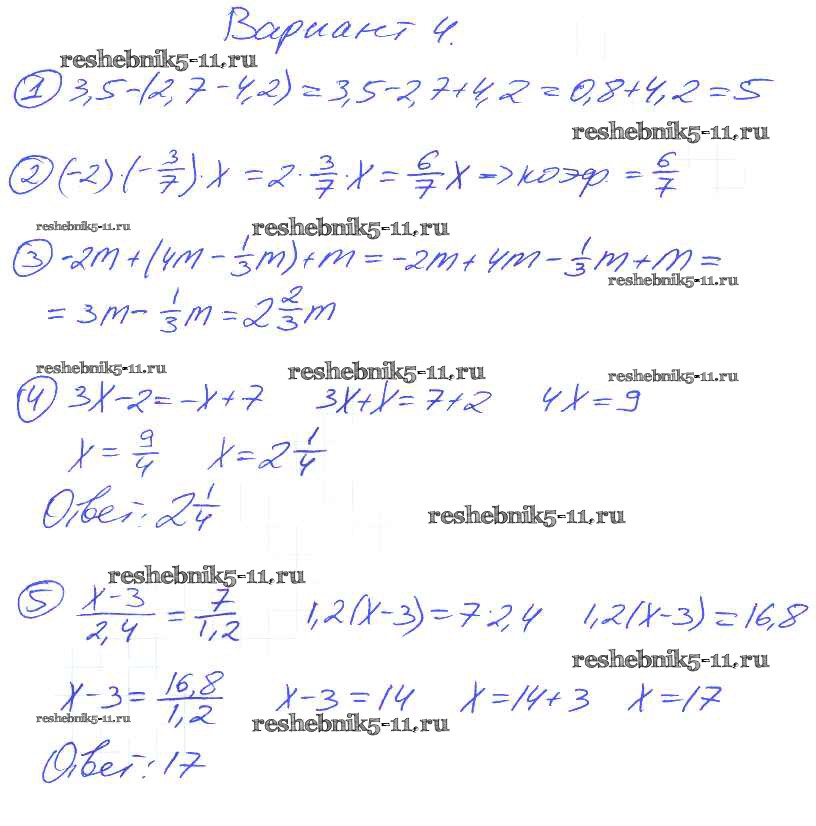 Вариант 4.
reshebnik5-11.ru
① 3,5-(2,7-4,2)=3,5-2,7+4,2=0,8+4,2=5
reshebnik5-11.ru
② (-2)·(-3/7)·x=2·3/7·x=6/7x=>коэф.=6/7
reshebnik5-11.ru reshebnik5-11.ru
③ -2m+(4m-1/3m)+m=-2m+4m-1/3m+m=
reshebnik5-11.ru
=3m-1/3m=2 2/3m
reshebnik5-11.ru reshebnik5-11.ru reshebnik5-11.ru
④ 3x-2=-x+7 3x+x=7+2 4x=9
x=9/4 x=2 1/4
Ответ: 2 1/4
reshebnik5-11.ru
reshebnik5-11.ru
⑤ x-3/2,4=7/1,2 1,2(x-3)=7·2,4 1,2(x-3)=16,8
reshebnik5-11.ru
x-3=16,8/1,2 x-3=14 x=14+3 x=17
reshebnik5-11.ru reshebnik5-11.ru
Ответ: 17